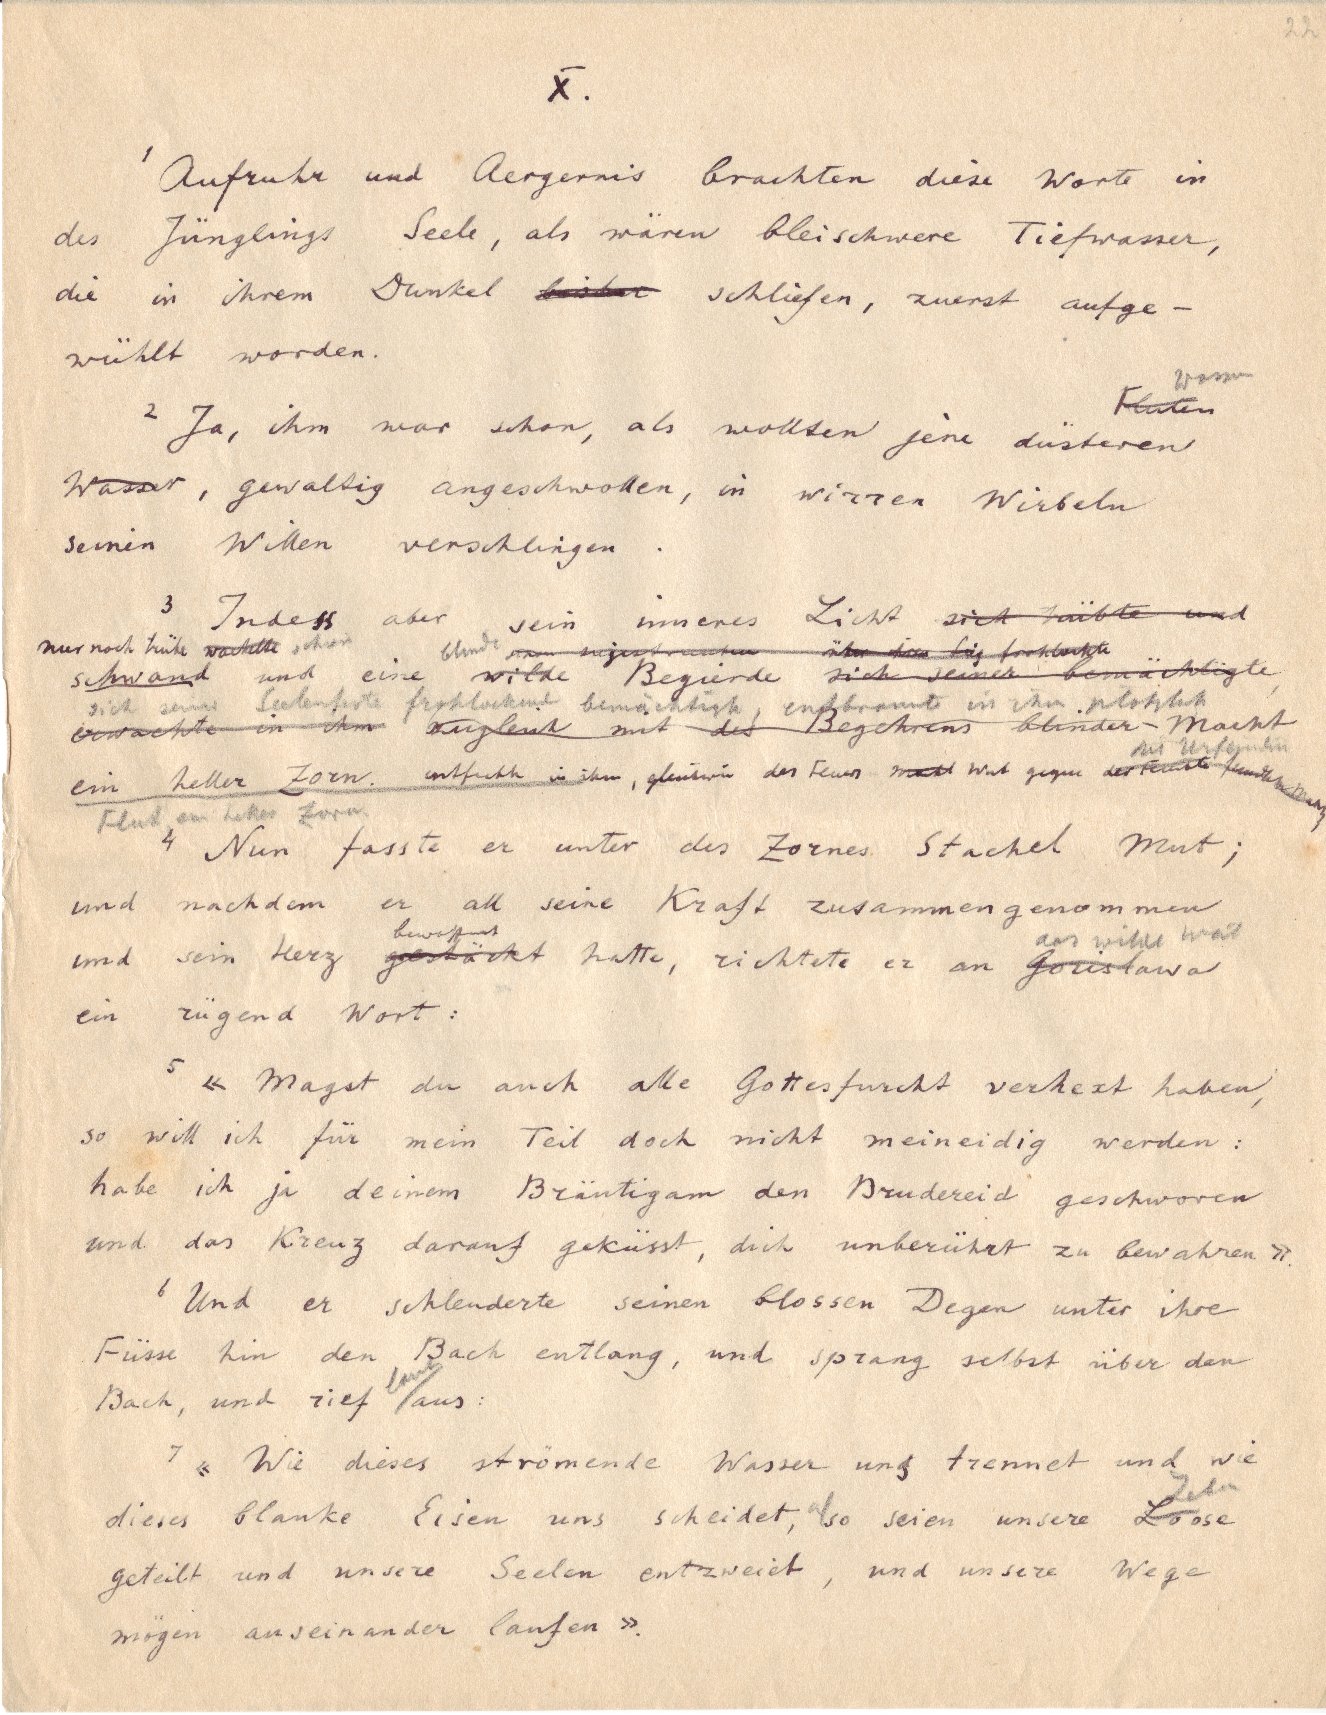 22
X.
1 Aufruhr und Aergernis brachten diese Worte in
des Jünglings Seele, als wären bleischwere Tiefwasser,
die in ihrem Dunkel bisher schliefen, zuerst aufge-
wühlt worden.
Wasser
Fluten
2 Ja, ihm war schon, als wollten jene düsteren
Wasser, gewaltig angeschwollen, in wirren Wirbeln
seinen Willen verschlingen.
3 Indess aber sein inneres Licht sich trübte und
nur noch trübe schon blinde frohlockte
schwand und eine wilde Begierde sich seiner bemächtigte,
sich seiner Seelenfeste frohlockend bemächtigt, entbrannte in ihm plötzlich
erwachte in ihm zugleich mit des Begehrens blinder Macht
ein heller Zorn. entfacht in ihm, gleichwie des Feuers Wut gegen der
Flut ein heller Zorn.
4 Nun fasste er unter des Zornes Stachel Mut;
und nachdem er all seine Kraft zusammengenommen
bewaffnet das wilde
und sein Herz gestärkt hatte, richtete er an Gorislawa
ein rügend Wort:
5 « Magst du auch alle Gottesfurcht verhext haben,
so will ich für mein Teil doch nicht meineidig werden:
habe ich ja deinem Bräutigam den Brudereid geschworen
und das Kreuz darauf geküsst, dich unberührt zu bewahren ».
6 Und er schleuderte seinen blossen Degen unter ihre
Füsse hin den Bach entlang, und sprang selbst über den
laut
Bach, und rief aus:
7 « Wie dieses strömende Wasser uns trennet und wie
dieses blanke Eisen uns scheidet, also seien unsere Loose
geteilt und unsere Seelen entzweiet, und unsere Wege
mögen auseinander laufen ».